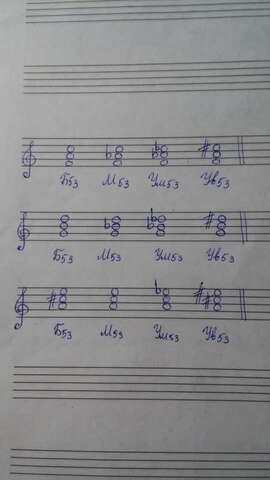 Б53 М53 Ум53 Ув53
Б53 М53 Ум53 Ув53
Б53 М53 Ум53 Ув53